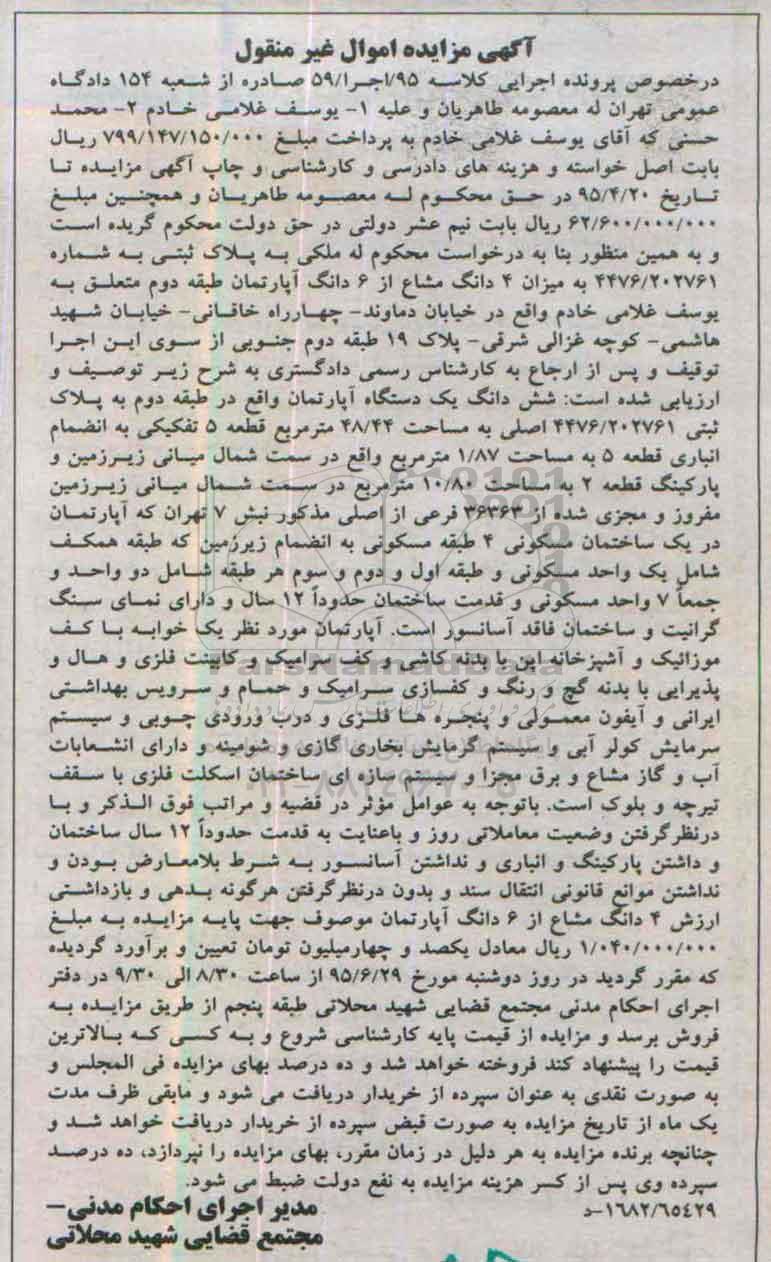 آگهی مزایده اموال غیر منقول
درخصوص پرونده اجرایی کلاسه ۹۵/اجرا/۵۹ صادره از شعبه ۱۵۴ دادگاه
عمومی تهران له معصومه طاهریان و علیه ۱- یوسف غلامی خادم ۲- محمد
حسنی که آقای یوسف غلامی خادم به پرداخت مبلغ ۷۹۹/۱۴۷/۱۵۰/۰۰۰ ریال
بابت اصل خواسته و هزینه های دادرسی و کارشناسی و چاپ آگهی مزایده تا
تاریخ ۹۵/۴/۲۰ در حق محکوم له معصومه طاهریان و همچنین مبلغ
۶۲/۶۰۰/۰۰۰/۰۰۰ ریال بابت نیم عشر دولتی در حق دولت محکوم گریده است
و به همین منظور بنا به درخواست محکوم له ملکی به پلاک ثبتی به شماره
۴۴۷۶/۲۰۲۷۶۱ به میزان ۴ دانگ مشاع از ۶ دانگ آپارتمان طبقه دوم متعلق به
یوسف غلامی خادم واقع در خیابان دماوند- چهارراه خاقانی- خیابان شهید
هاشمی- کوچه غزالی شرقی- پلاک ۱۹ طبقه دوم جنوبی از سوی این اجرا
توقیف و پس از ارجاع به کارشناس رسمی دادگستری به شرح زیر توصیف و
ارزیابی شده است: شش دانگ یک دستگاه آپارتمان واقع در طبقه دوم به پلاک
ثبتی ۴۴۷۶/۲۰۲۷۶۱ اصلی به مساحت ۴۸/۴۴ مترمربع قطعه ۵ تفکیکی به انضمام
انباری قطعه ۵ به مساحت ۱/۸۷ مترمربع واقع در سمت شمال میانی زیرزمین و
پارکینگ قطعه ۲ به مساحت ۱۰/۸۰ مترمربع در سمت شمال میانی زیرزمین
مفروز و مجزی شده از ۳۶۳۶۳ فرعی از اصلی مذکور نبش ۷ تهران که آپارتمان
در یک ساختمان مسکونی ۴ طبقه مسکونی به انضمام زیرزمین که طبقه همکف
شامل یک واحد مسکونی و طبقه اول و دوم و سوم هر طبقه شامل دو واحد و
جمعاً ۷ واحد مسکونی و قدمت ساختمان حدوداً ۱۲ سال و دارای نمای سنگ
گرانیت و ساختمان فاقد آسانسور است. آپارتمان مورد نظر یک خوابه با کف
موزائیک و آشپزخانه اپن با بدنه کاشی و کف سرامیک و کابینت فلزی و هال و
پذیرایی با بدنه گچ و رنگ و کفسازی سرامیک و حمام و سرویس بهداشتی
ایرانی و آیفون معمولی و پنجره ها فلزی و درب ورودی چوبی و سیستم
سرمایش کولر آبی و سیستم گرمایش بخاری گازی و شومینه و دارای انشعابات
آب و گاز مشاع و برق مجزا و سیستم سازه ای ساختمان اسکلت فلزی با سقف
تیرچه و بلوک است. باتوجه به عوامل مؤثر در قضیه و مراتب فوق الذکر و با
درنظرگرفتن وضعیت معاملاتی روز و باعنایت به قدمت حدوداً ۱۲ سال ساختمان
و داشتن پارکینگ و انباری و نداشتن آسانسور به شرط بلامعارض بودن و
نداشتن موانع قانونی انتقال سند و بدون درنظرگرفتن هرگونه بدهی و بازداشتی
ارزش ۴ دانگ مشاع از ۶ دانگ آپارتمان موصوف جهت پایه مزایده به مبلغ
۱/۰۴۰/۰۰۰/۰۰۰ ریال معادل یکصد و چهارمیلیون تومان تعیین و برآورد گردیده
که مقرر گردید در روز دوشنبه مورخ ۹۵/۶/۲۹ از ساعت ۸/۳۰ الی ۹/۳۰ در دفتر
اجرای احکام مدنی مجتمع قضایی شهید محلاتی طبقه پنجم از طریق مزایده به
فروش برسد و مزایده از قیمت پایه کارشناسی شروع و به کسی که بالاترین
قیمت را پیشنهاد کند فروخته خواهد شد و ده درصد بهای مزایده فی المجلس و
به صورت نقدی به عنوان سپرده از خریدار دریافت می شود و مابقی ظرف مدت
یک ماه از تاریخ مزایده به صورت قبض سپرده از خریدار دریافت خواهد شد و
چنانچه برنده مزایده به هر دلیل در زمان مقرر، بهای مزایده را نپردازد، ده درصد
سپرده وی پس از کسر هزینه مزایده به نفع دولت ضبط می شود.
۱۶۸۲/۶۵۴۲۹-د
مدیر اجرای احکام مدنی-
مجتمع قضایی شهید محلاتی
ParsNamadData